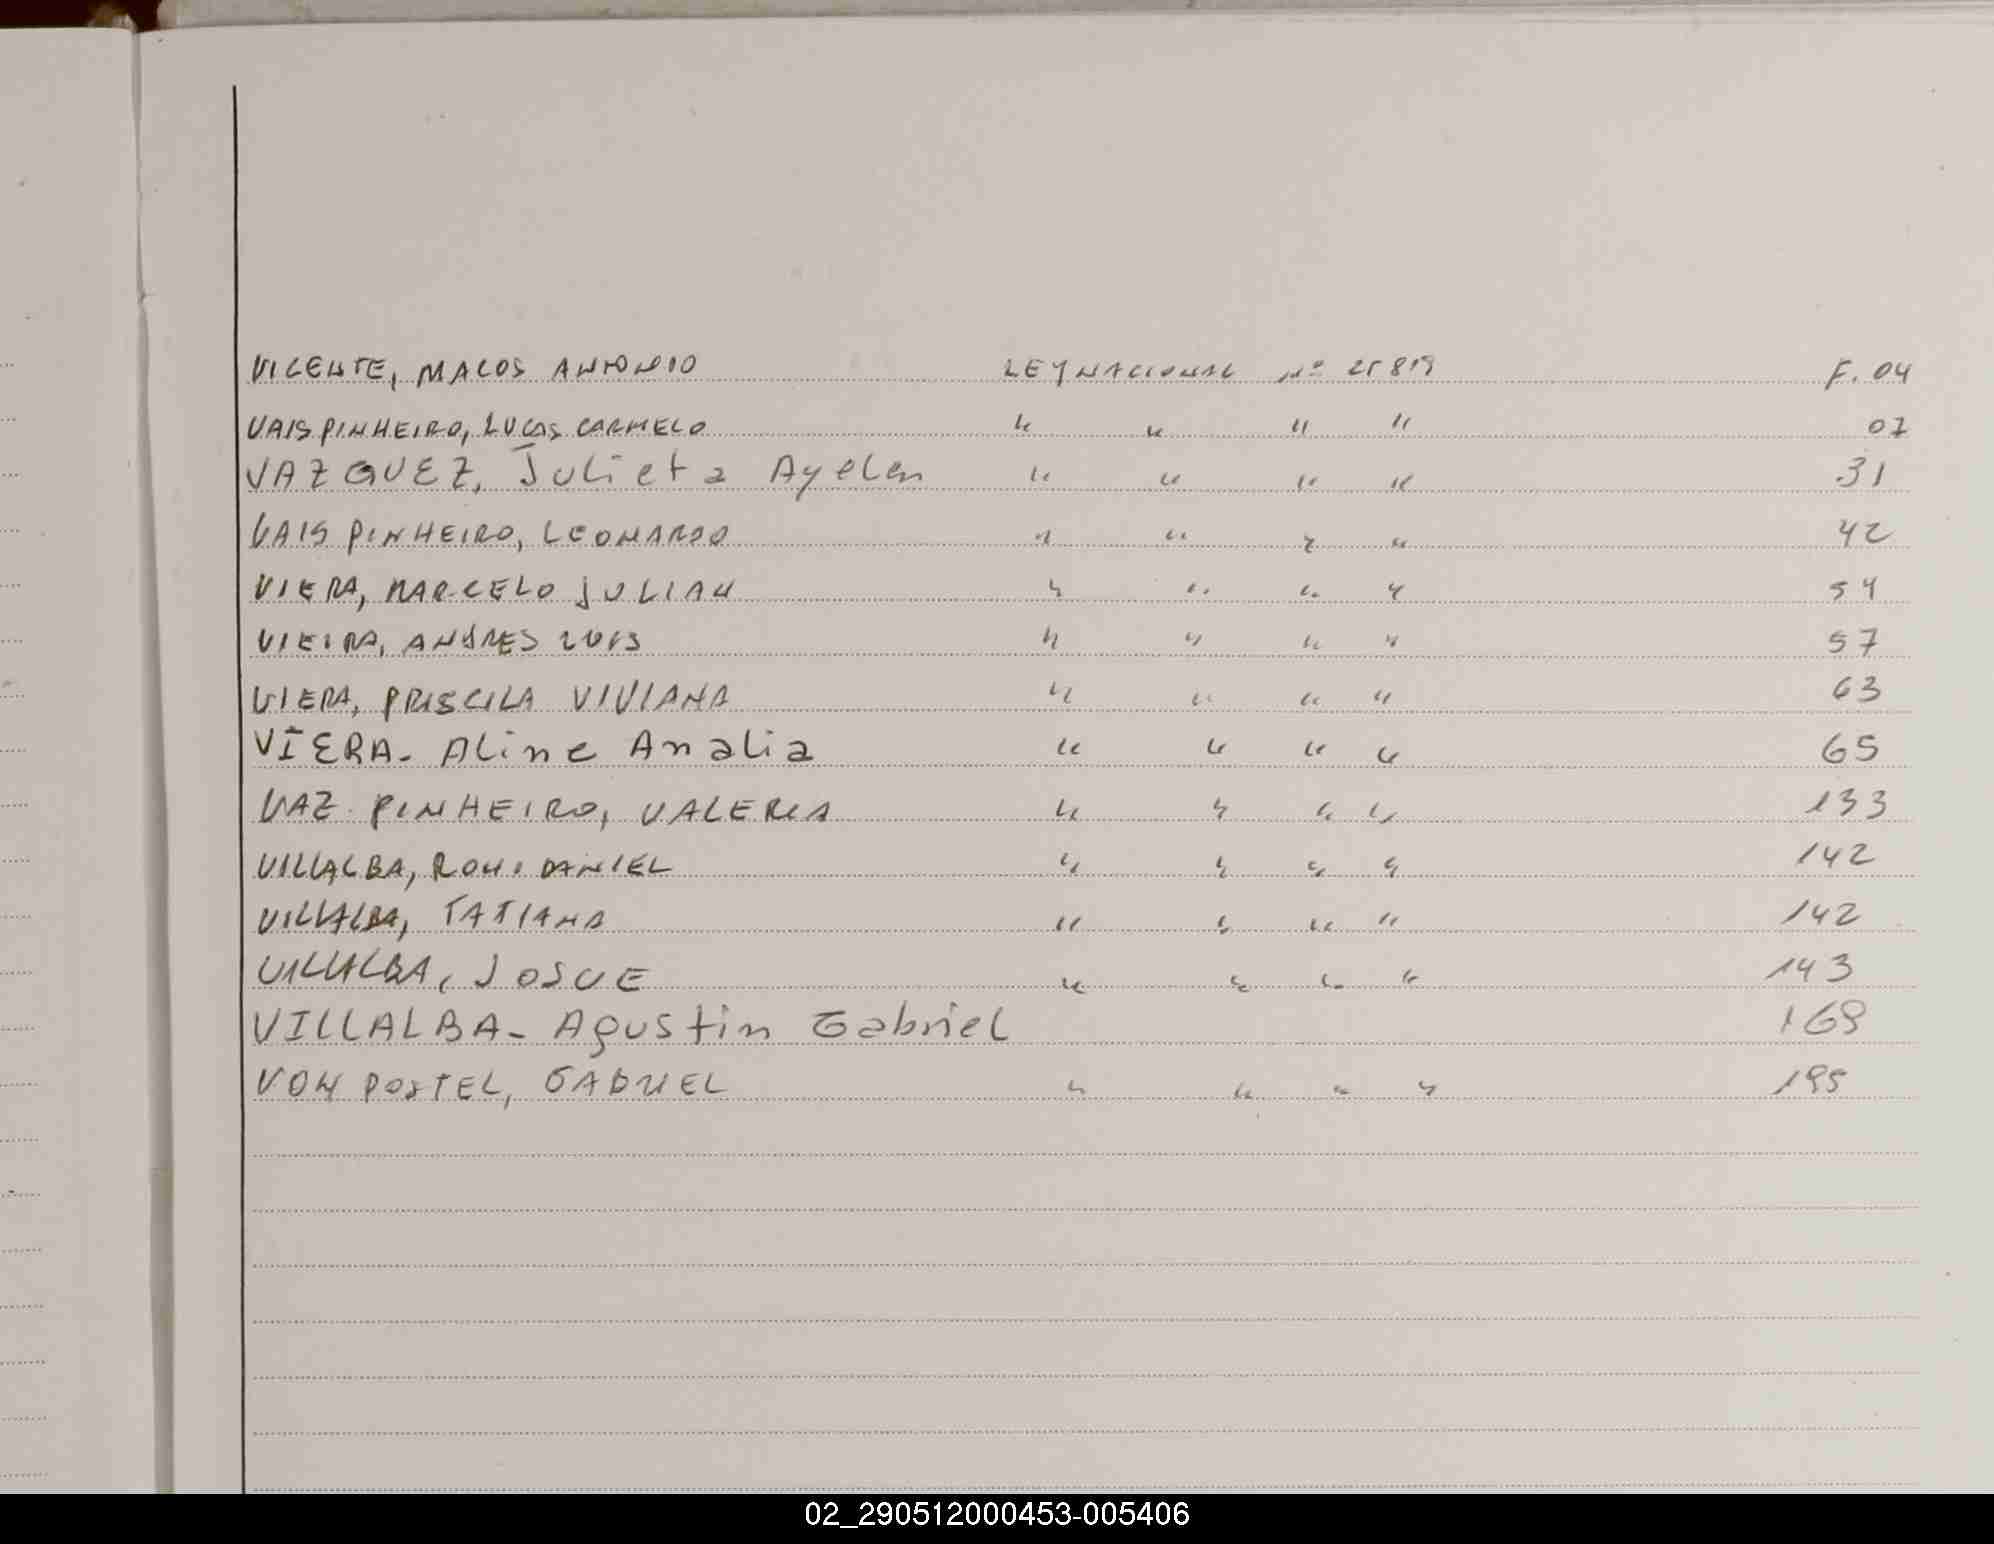 VICENTE, MACOS ANTONIO LEY NACIONAL Nº 25819 F. 04
VAIS PINHEIRO, LUCAS CARMELO " " " " 07
VAZQUEZ, Julieta Ayelen " " " " 31
VAIS PINHEIRO, LEONARDO " " " " 42
VIERA, MARCELO JULIAN " " " " 54
VIEIRA, ANDRES " " " " 57
VIERA, PRISCILA VIVIANA " " " " 63
VIERA- Aline Analia " " " " 65
VAZ PINHEIRO, VALERIA " " " " 133
VILLALBA, DANIEL " " " " 142
VILLALBA, TATIANA " " " " 142
VILLALBA, JOSUE " " " " 143
VILLALBA- Agustin Gabriel 169
VON POSTEL, GABRIEL " " " " 195
02_290512000453-005406